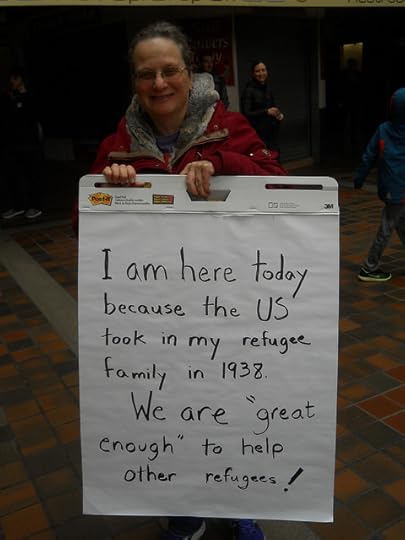 Post-it
3M
I am here today
because the US
took in my refugee
family in 1938.
We are "great
enough" to help
other refugees!